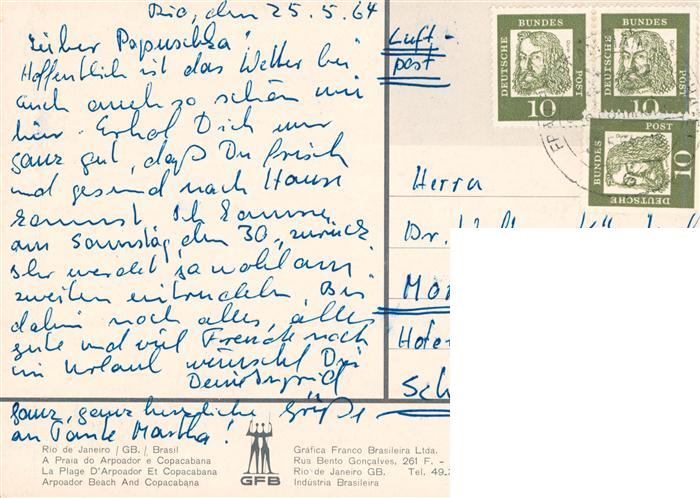 Rio, den 25.5.64
Lieber Papuschka!
Hoffentlich ist das Wetter bei
Euch auch so schön wie
hier. Erhol Dich nur
ganz gut, daß Du frisch
und gesund nach Hause
kommst. Ich komme
am Samstag, den 30., zurück
Ihr werdet ja wohl am
zweiten eintrudeln. Bis
dahin noch alles, alles
gute und viel Freude noch
im Urlaub wünscht Dir
Deine Ingrid
Ganz, ganz herzliche Grüße
an Tante Martha!
Luft-
post
DEUTSCHE BUNDES POST
10
DEUTSCHE BUNDES POST
10
DEUTSCHE BUNDES POST
10
Herrn
Dr.
Hofe
Rio de Janeiro / GB. / Brasil
A Praia do Arpoador e Copacabana
La Plage D'Arpoador Et Copacabana
Arpoador Beach And Copacabana
GFB
Gráfica Franco Brasileira Ltda.
Rua Bento Gonçalves, 261 F. -
Rio de Janeiro GB. Tel. 49.
Indústria Brasileira